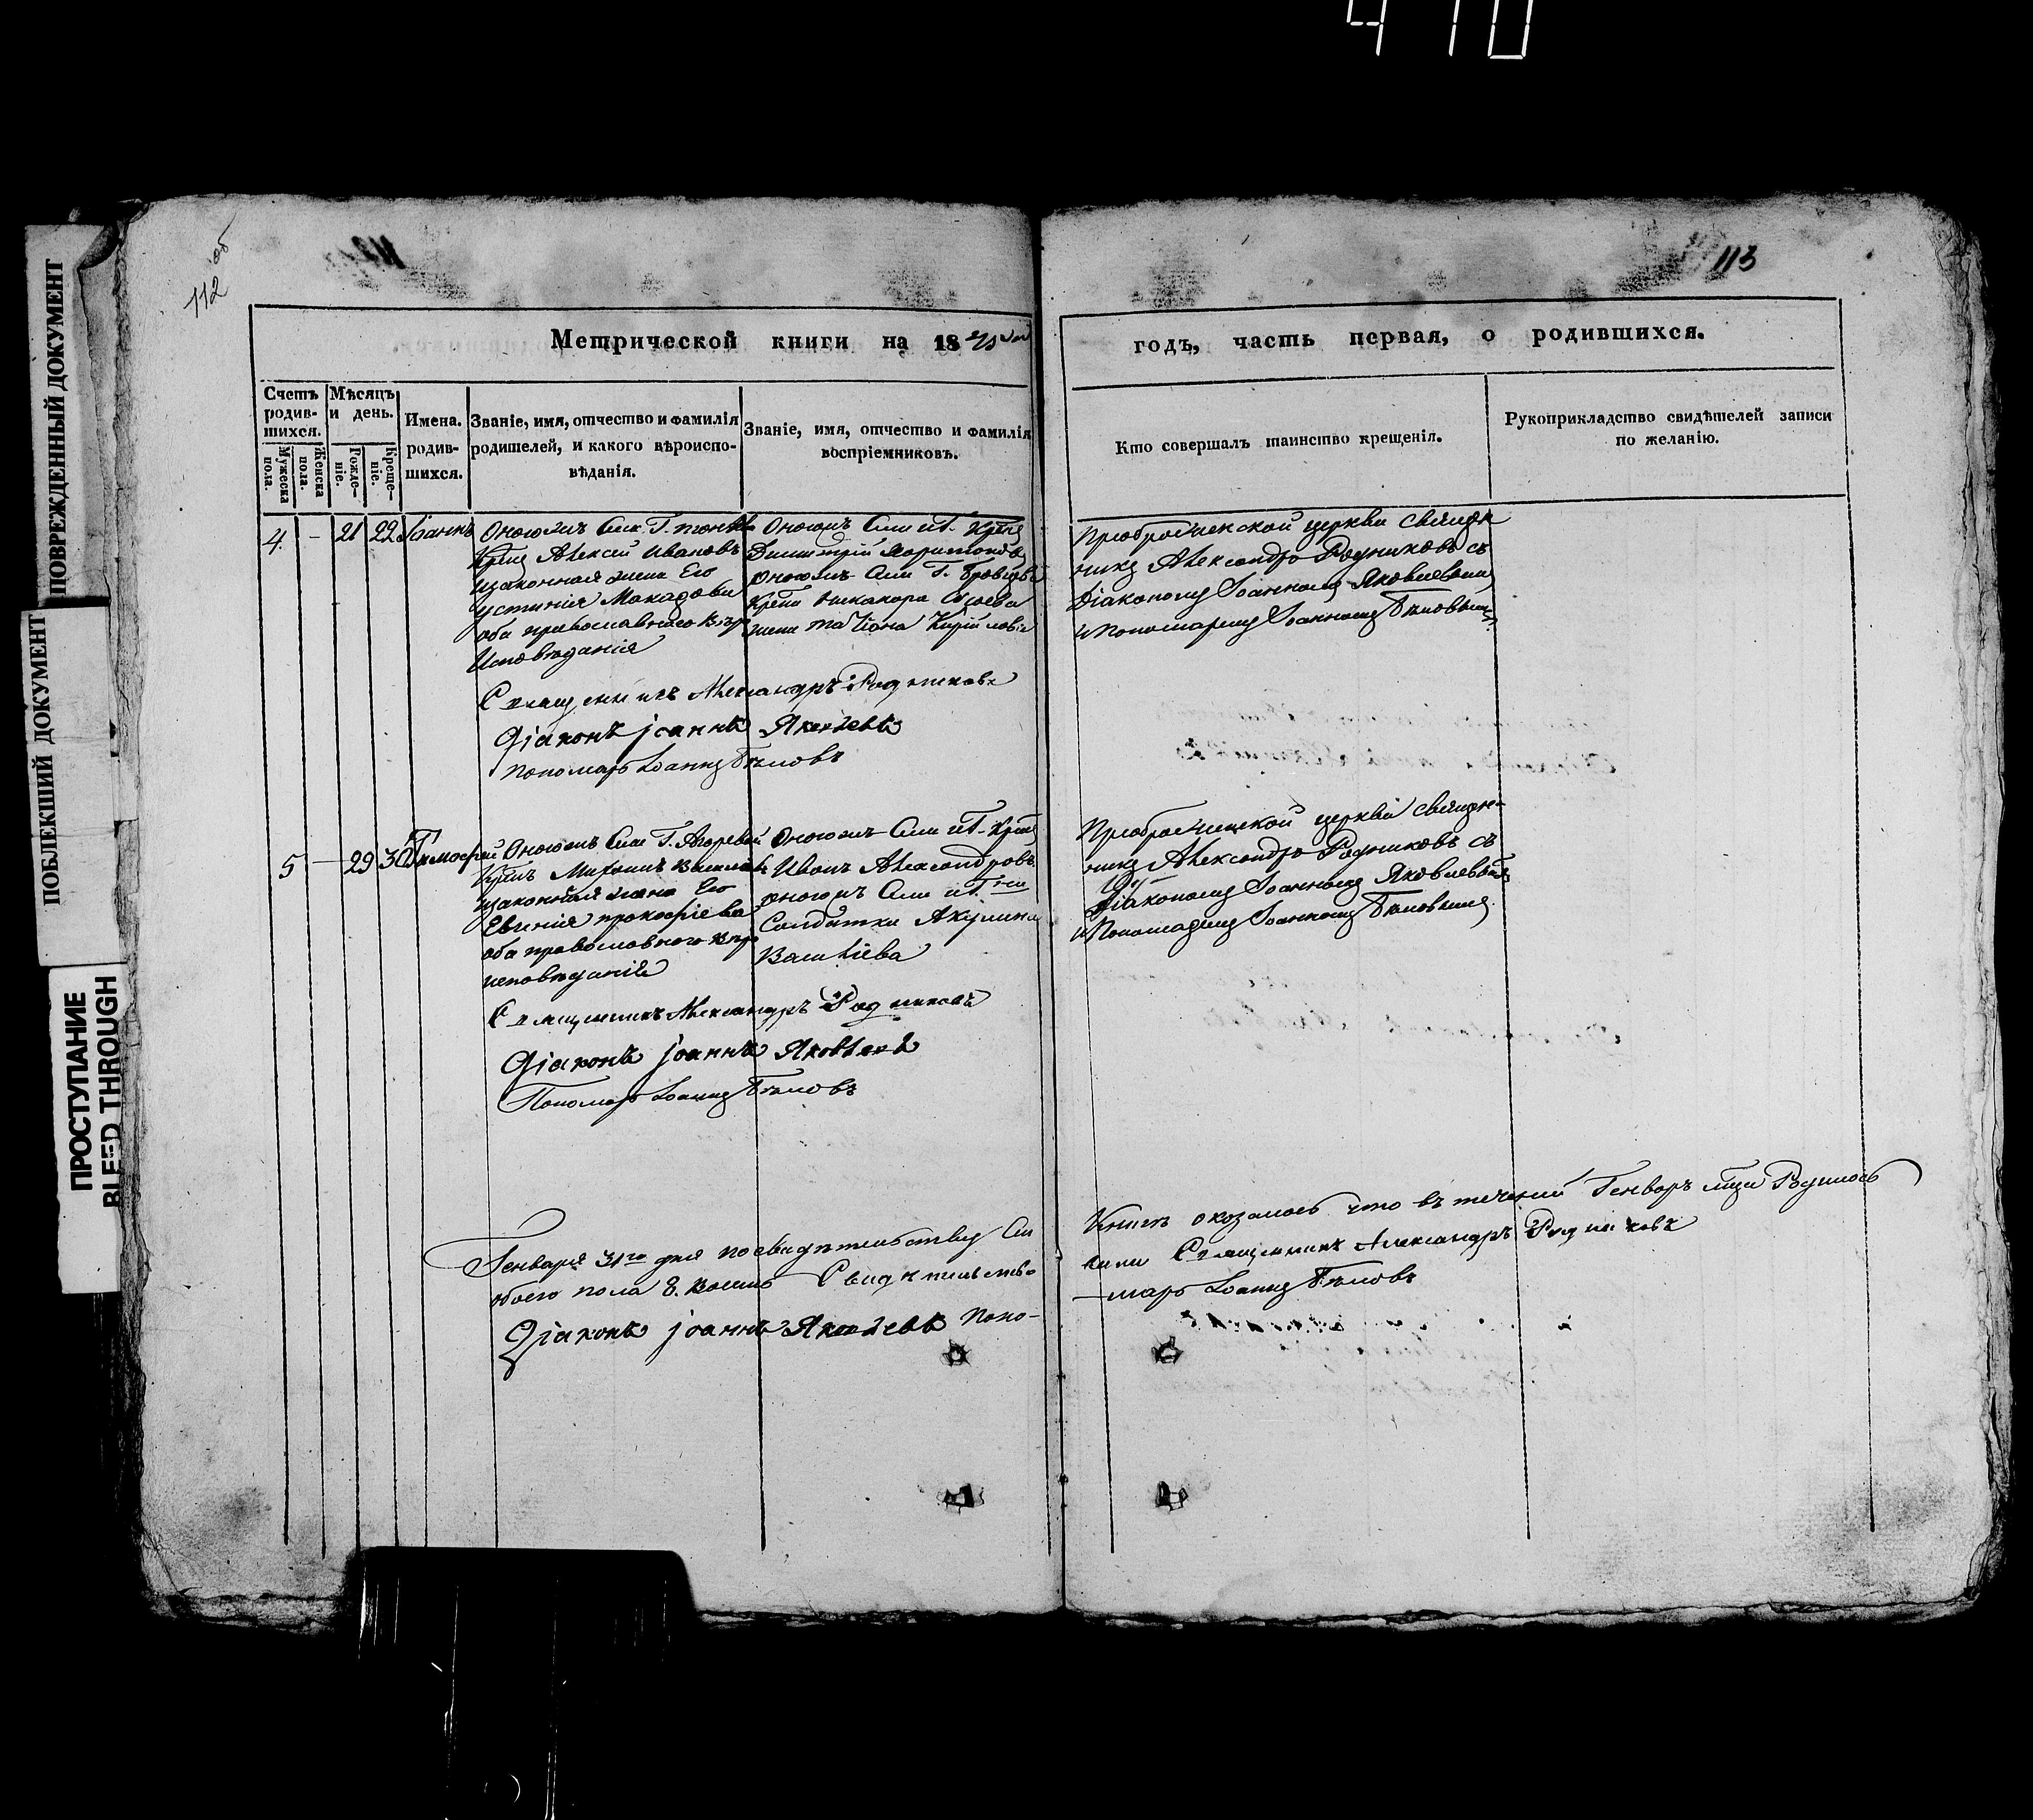 470
ПОВРЕЖДЕННЫЙ ДОКУМЕНТ
ПОБЛЕКШИЙ ДОКУМЕНТ
ПРОСТУПАНИЕ
BLEED THROUGH
112 об
113
Метрической книги на 18
годъ, часть первая, о родившихся.
Счетъ родив-шихся.
Мужеска пола.
Женска пола.
Мѣсяцъ и день.
Рожде-ніе.
Креще-ніе.
Имена. родив-шихся.
Званіе, имя, отчество и фамилія
родителей, и какого вѣроиспо-
вѣданія.
Званіе, имя, отчество и фамилія
воспріемниковъ.
Кто совершалъ таинство крещенія.
Рукоприкладство свидѣтелей записи
по желанію.
4. - 21 22 Іоаннъ
Алексей Ивановъ
изаконная жена Его
устинія
оба православнаго
Исповѣданія
Димитрій
жена
Преображенской церкви священ
никъ Александръ Родниковъ съ
Діакономъ Іоанномъ Яковлевымъ
и Пономаремъ Іоанномъ Бѣловымъ
Священникъ Александръ Родниковъ
Діаконъ Іоаннъ Яковлевъ
Пономарь Іоаннъ Бѣловъ
5 - 29 30 Тимофей
изаконная жена Его
Евгенія прокофіева
оба православного
исповѣданія
Иванъ Александровъ
Солдатка Акулина
Василіева
Преображенской церкви священ-
никъ Александръ Родниковъ съ
Діакономъ Іоанномъ Яковлевымъ
и Пономаремъ Іоанномъ Бѣловымъ
Священникъ Александръ Родниковъ
Діаконъ Іоаннъ Яковлевъ
Пономарь Іоаннъ Бѣловъ
Генваря 31го дня по свидѣтельству Сихъ
Книгъ оказалось что въ теченіи Генваря мца Родилось
обоего пола 8. Восемь Свидѣтельство
вали Священникъ Александръ Родниковъ
Діаконъ Іоаннъ Яковлевъ Поно-
марь Іоаннъ Бѣловъ